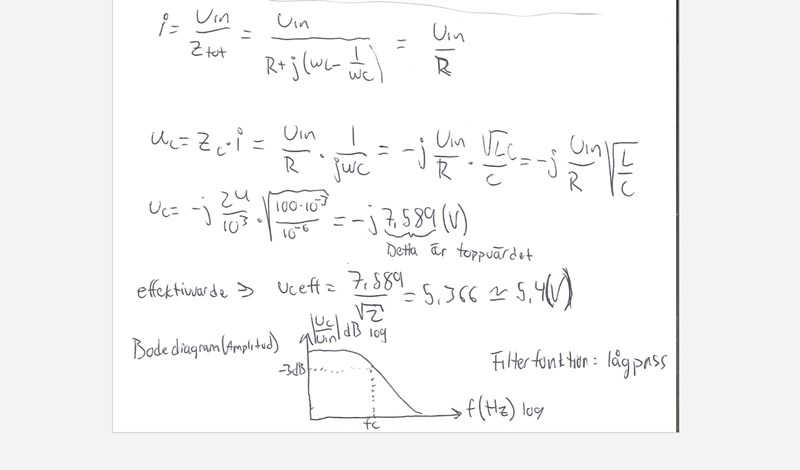 i = Uin/Ztot = Uin/(R+j(wL-1/wC)) = Uin/R
uc = Zc·i = Uin/R · 1/jwC = -j Uin/R · √LC/C = -j Uin/R √(L/C)
Uc = -j 24/10³ · √(100·10⁻³/10⁻⁶) = -j 7,589 (V)
Detta är toppvärdet
effektivvärde ⇒ Uceff = 7,589/√2 = 5,366 ≃ 5,4(V)
Bodediagram(Amplitud) |Uc/Uin| dB log
-3dB
Filterfunktion: lågpass
fc
f(Hz) log